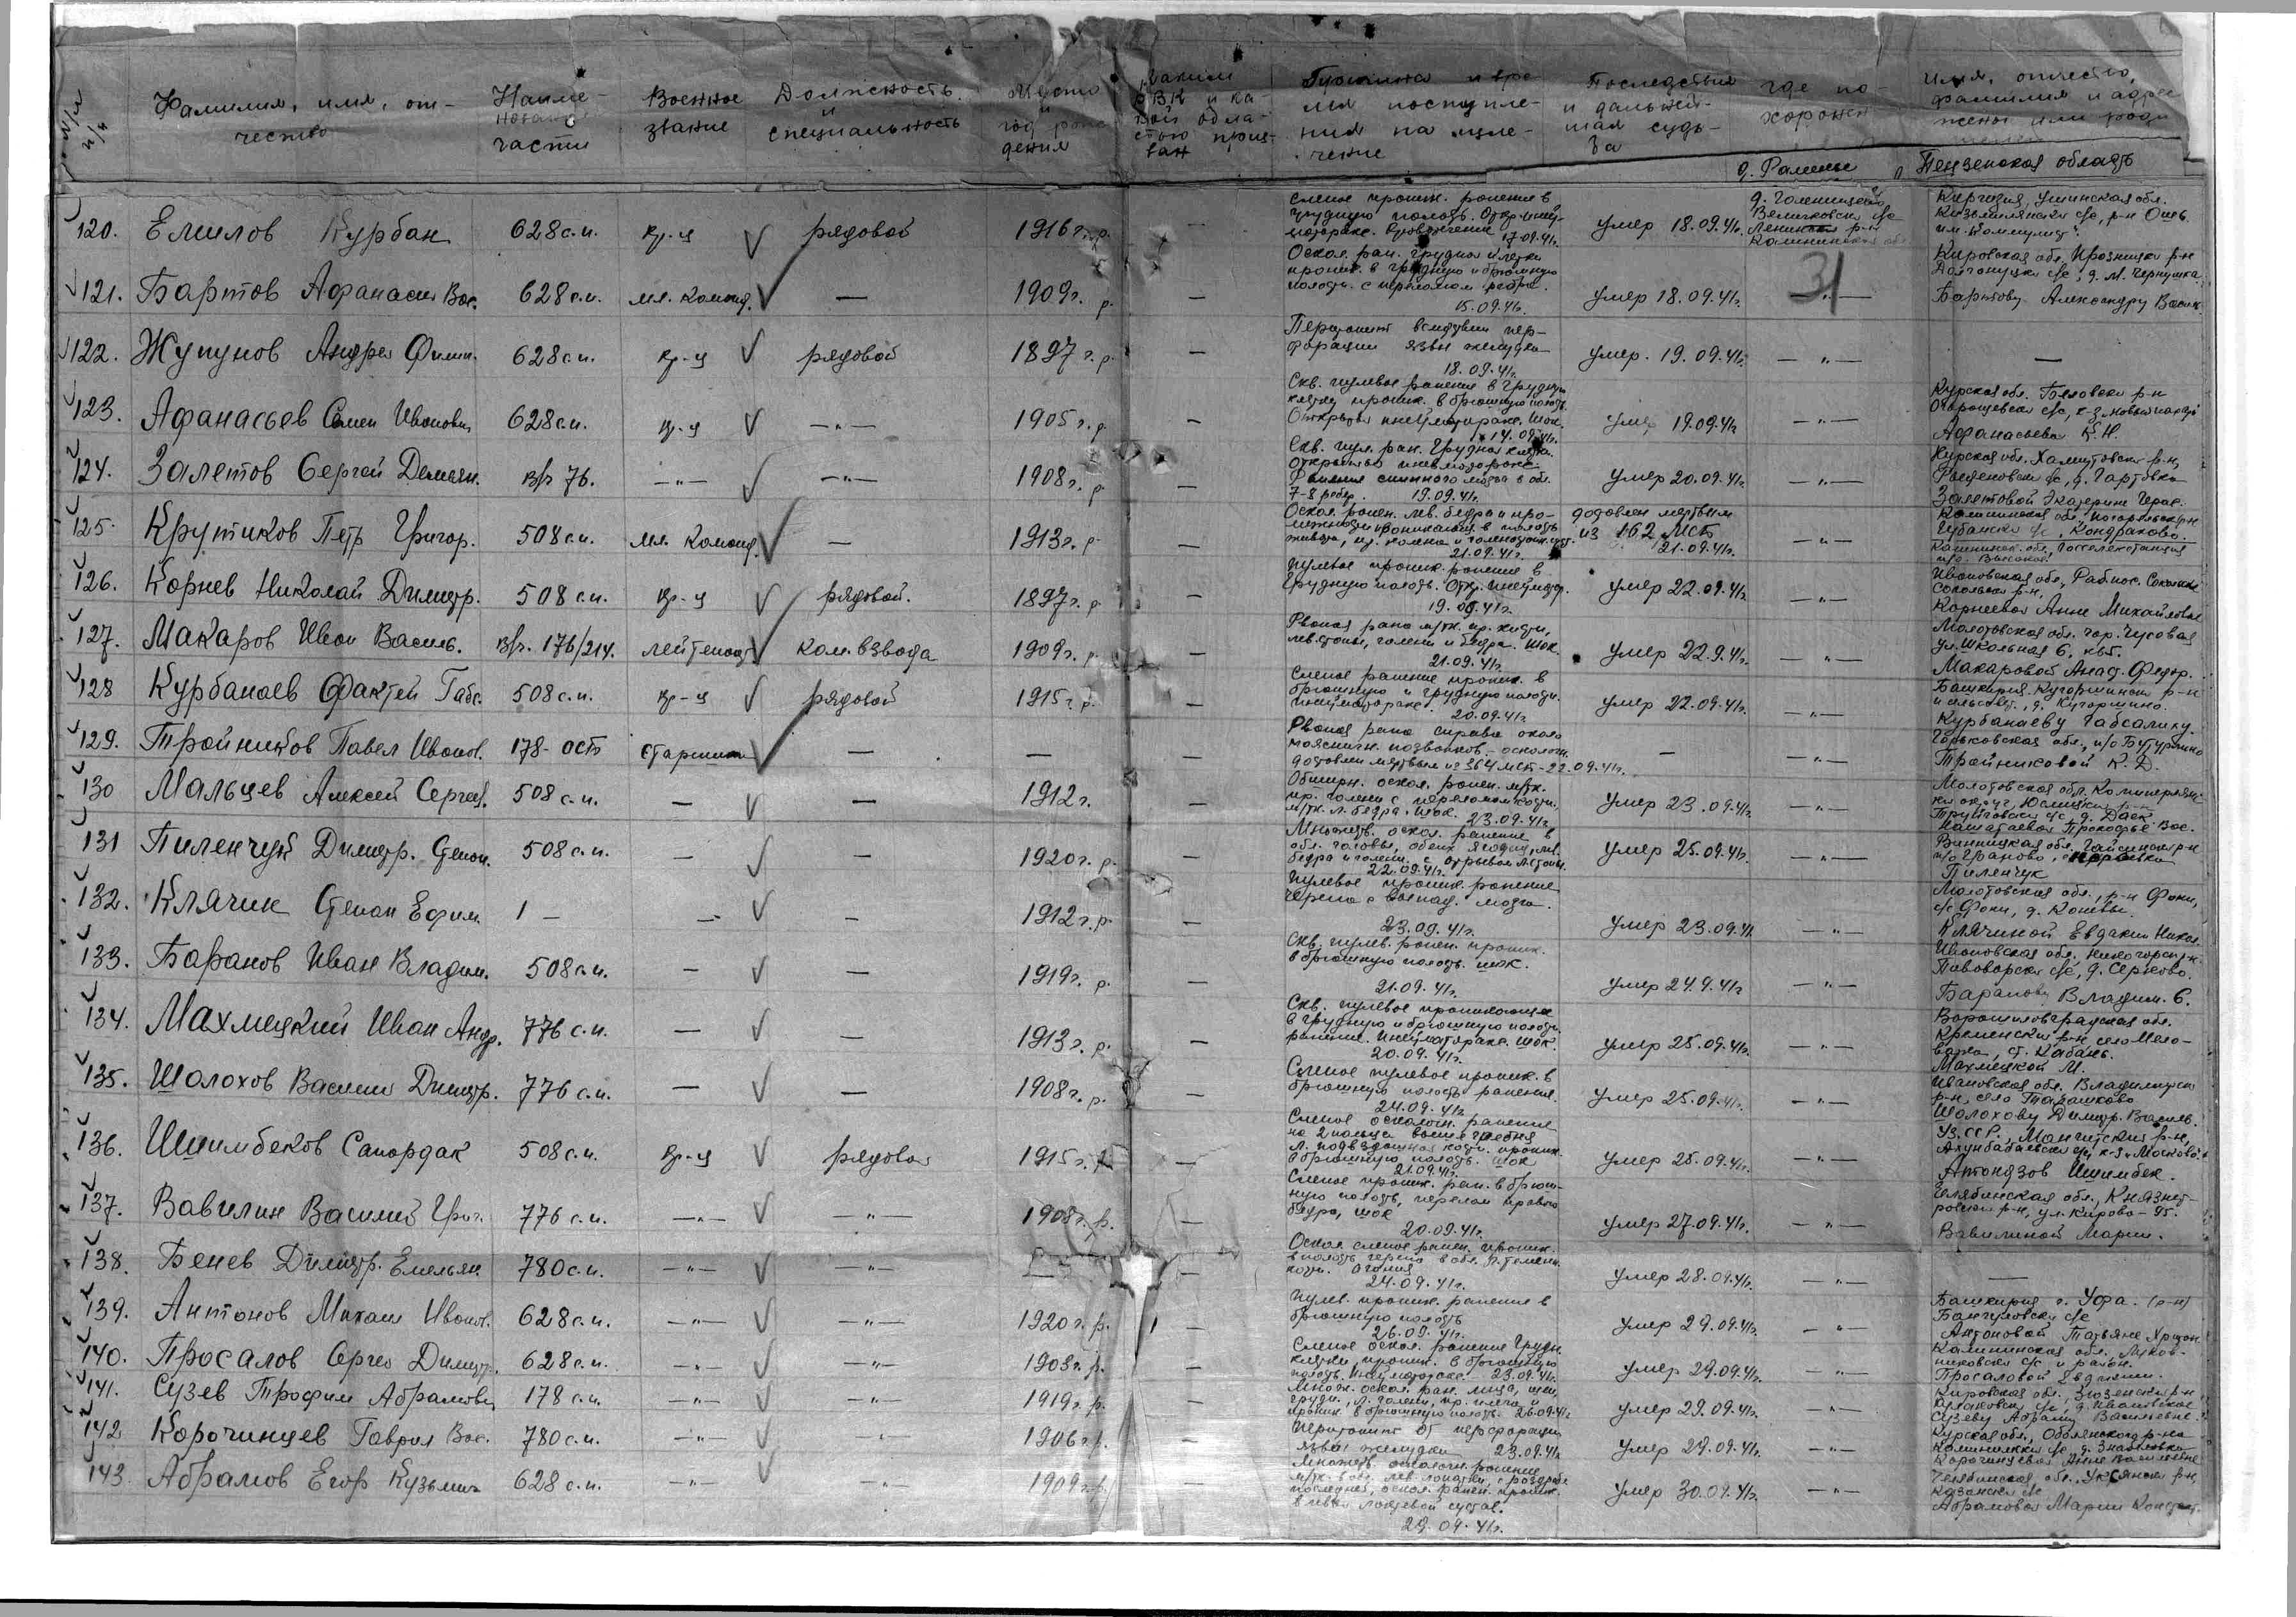 №/№ п/п
Фамилия, имя, от-
чество
Наиме-
нование
части
Военное
звание
Должность
и
специальность
Место
и
год рож
дения
Каким
РВК и ка-
кой обла-
стью приз-
ван
Причина и вре-
мя поступле-
ния на изле-
чение
Последствия
и дальней-
шая судь-
ба
где по-
хоронен
имя, отчество,
фамилия и адрес
жены или роди
д. Раменье
Пензенская область
120. Емилов Курбан 628 с.п. кр-ц рядовой 1916 г.р. —
Слепое проник. ранение в
грудную полость. Откр. пнев-
моторакс. Кровотечение 17.09.41г.
умер 18.09.41г.
д. Голенищево
Величковский с/с
Ленинский р-н
Калининская обл
Киргизия, Ошинская обл.
с/с, р-н Ошь
им. "Коммунист".
121. Бартов Афанасий Вас. 628 с.п. мл. команд. — 1909 г.р. —
Оскол. ран. грудной клетки
проник. в грудную и брюшную
полость с переломом ребра.
15.09.41г.
умер 18.09.41г.
31
— " —
Кировская обл. р-н
с/с, д. М. Чернушка
Бартову Александру Васил.
122. Жупунов Андрей Филип. 628 с.п. кр-ц рядовой 1897 г.р. —
Перитонит вследствии пер-
форации язвы желудка
18.09.41г.
умер. 19.09.41г. — " — —
123. Афанасьев Семен Иванович 628 с.п. кр-ц — " — 1905 г.р. —
Скв. пулевое ранение в грудную
клетку проник. в брюшную полость.
Открытый пневмоторакс. Шок.
14.09.41г.
умер 19.09.41г. — " —
Курская обл. Беловский р-н
с/с, к-з
Афанасьева К.Н.
124. Залетов Сергей Демьян. в/ч 76. — " — — " — 1908 г.р. —
Скв. пул. ран. грудной клетки.
открытый пневмоторакс.
Ранение спинного мозга в обл.
7-8 ребер. 19.09.41г.
умер 20.09.41г. — " —
Курская обл. Хомутовский р-н,
с/с, д. Гартовка
Залетовой Екатерине Герас.
125. Крутиков Петр Григор. 508 с.п. мл. команд. — 1913 г.р. —
Оскол. ранен. лев. бедра и про-
межности проникающ. в полость
живота, пр. колена и голеностоп. суст.
21.09.41г.
доставлен мертвым
из 162 МСБ
21.09.41г.
— " —
Калининская обл. Погорельский р-н
с/с, Кондраково.
Калининск. обл.,
п/о Высокое.
126. Корнев Николай Димитр. 508 с.п. кр-ц рядовой. 1897 г.р. —
Пулевое проник. ранение в
грудную полость. Откр. пневмотор.
19.09.41г.
умер 22.09.41г. — " —
Ивановская обл., Раб. пос.
Сокольск р-н,
Корневой Анне Михайловне
127. Макаров Иван Василь. в/ч. 176/214. лейтенант ком. взвода 1909 г.р. —
Рваная рана м/тк. пр. кисти,
лев. стопы, голени и бедра. Шок.
21.09.41г.
умер 22.9.41г. — " —
Молотовская обл. гор. Чусовая
ул. Школьная 6, кв5.
Макаровой Анад. Федор.
128 Курбанаев Фахтей Габс. 508 с.п. кр-ц рядовой 1915 г.р. —
Слепое ранение проник. в
брюшную и грудную полость.
пневмоторакс. 20.09.41г.
умер 22.09.41г. — " —
Башкирия Кугарчинский р-н
и сельсовет, д. Кугарчино.
Курбанаеву Габсалику.
129. Тройников Павел Иванов. 178-ОСТБ старшина — — —
Рваная рана справа около
поясничн. позвонков. — осколочн.
доставлен мертвым из 364 МСБ - 22.09.41г.
— — " —
Горьковская обл., п/о Бутурлино
Тройниковой К.Д.
130 Мальцев Алексей Сергеев. 508 с.п. — — 1912 г. —
Обширн. оскол. ранен. м/тк.
пр. голени с переломом кости.
м/тк. л. бедра. шок. 23.09.41г.
умер 23.09.41г. — " —
Молотовская обл. Коми пермяк-
кий округ, Юсминский р-н
с/с, д. Даек
Прокофье Вас.
131 Пиленчук Димитр. Степан. 508 с.п. — — 1920 г.р. —
Множеств. оскол. ранение в
обл. головы, обеих ягодиц, лев.
бедра и голени. с отрывом л. стопы.
22.09.41г.
умер 25.09.41г. — " —
Винницкая обл. Гайсинский р-н
п/о Граново, с.
Пиленчук
132. Клячин Степан Ефим. 1 — — — 1912 г.р. —
Пулевое проник. ранение
черепа с выпад. мозга.
23.09.41г.
умер 23.09.41 — " —
Молотовская обл., р-н Фоки,
с/с Фоки, д. Коневы.
Клячиной Евдокии Никол.
133. Баранов Иван Владим. 508 с.п. — — 1919 г.р. —
Скв. пулев. ранен. проник.
в брюшную полость. шок.
21.09.41г.
умер 24.9.41г — " —
Ивановская обл.
Пивоварский с/с, д. Серково.
Баранову Владим. С.
134. Махмецкий Иван Андр. 776 с.п. — — 1913 г.р. —
Скв. пулевое проникающее
в грудную и брюшную полость
ранение. Пневмоторакс. шок.
20.09.41г.
умер 25.09.41г. — " —
Ворошиловградская обл.
Кременский р-н, село Мело-
ватка, ст. Кабань.
Махмецкой М.
135. Шолохов Василий Димитр. 776 с.п. — — 1908 г.р. —
Слепое пулевое проник. в
брюшную полость ранение.
24.09.41г.
умер 25.09.41г. — " —
Ивановская обл. Владимирский
р-н, село Тарашково
Шолохову Димитр. Василь.
136. Ишимбеков Сапордак 508 с.п. кр-ц рядовой 1915 г.р. —
Слепое осколочн. ранение
на 2 пальца выше гребня
л. подвздошной кости. проник.
в брюшную полость. шок
21.09.41г.
умер 25.09.41г. — " —
Уз.ССР., Мангитский р-н,
Ахунбабаевский с/с, к-з "Москова"
Антонязов Ишимбек.
137. Вавилин Василий Григ. 776 с.п. — " — — " — 1908 г.р. —
Слепое проник. ран. в брюш-
ную полость, перелом правого
бедра, шок
20.09.41г.
умер 27.09.41г. — " —
Челябинская обл., Князпет-
ровский р-н, ул. Кирова - 45.
Вавилиной Марии.
138. Бенев Димитр. Емельян. 780 с.п. — " — — " — — —
Оскол. слепое ранен. проник.
в полость черепа в обл. л. теменн.
кости. Агония
24.09.41г.
умер 28.09.41г. — " — —
139. Антонов Михаил Иванов. 628 с.п. — " — — " — 1920 г.р. —
Пулев. проник. ранение в
брюшную полость
26.09.41г.
умер 29.09.41г. — " —
Башкирия г. Уфа. (р-н)
с/с
Антоновой Татьяне Хритон.
140. Просалов Сергей Димитр. 628 с.п. — " — — " — 1908 г.р. —
Слепое оскол. ранение грудн.
клетки, проник. в брюшную
полость. пневмоторакс. 23.09.41г.
умер 29.09.41г. — " —
Калининская обл. Луков-
никовский с/с и район.
Просаловой Евдокии.
141. Сузев Трофим Абрамович 178 с.п. — " — — " — 1919 г.р. —
Множ. оскол. ран. лица, шеи,
груди, л. голени, пр. плеча и
проник. в брюшную полость. 26.09.41г
умер 29.09.41г. — " —
Кировская обл., Зюзенский р-н,
с/с, д. Ивановское
Сузеву Абраму Васильевич.
142 Корочинцев Гаврил Вас. 780 с.п. — " — — " — 1906 г.р. —
Перитонит от перфорации
язвы желудка 23.09.41г
умер 29.09.41г. — " —
Курская обл., Обоянского р-на
с/с, д. Знобиловка
Корочинцевой Анне Васильевне
143 Абрамов Егор Кузьмич 628 с.п. — " — — " — 1909 г.р. —
Множеств. осколочн. ранение
м/тк. в обл. лев. лопатки, с раздробл.
последней, оскол. ранен. проник.
в левый локтевой сустав.
29.09.41г.
умер 30.09.41г. — " —
Челябинская обл., Уксянский р-н,
Казанский с/с
Абрамовой Марии Констант.